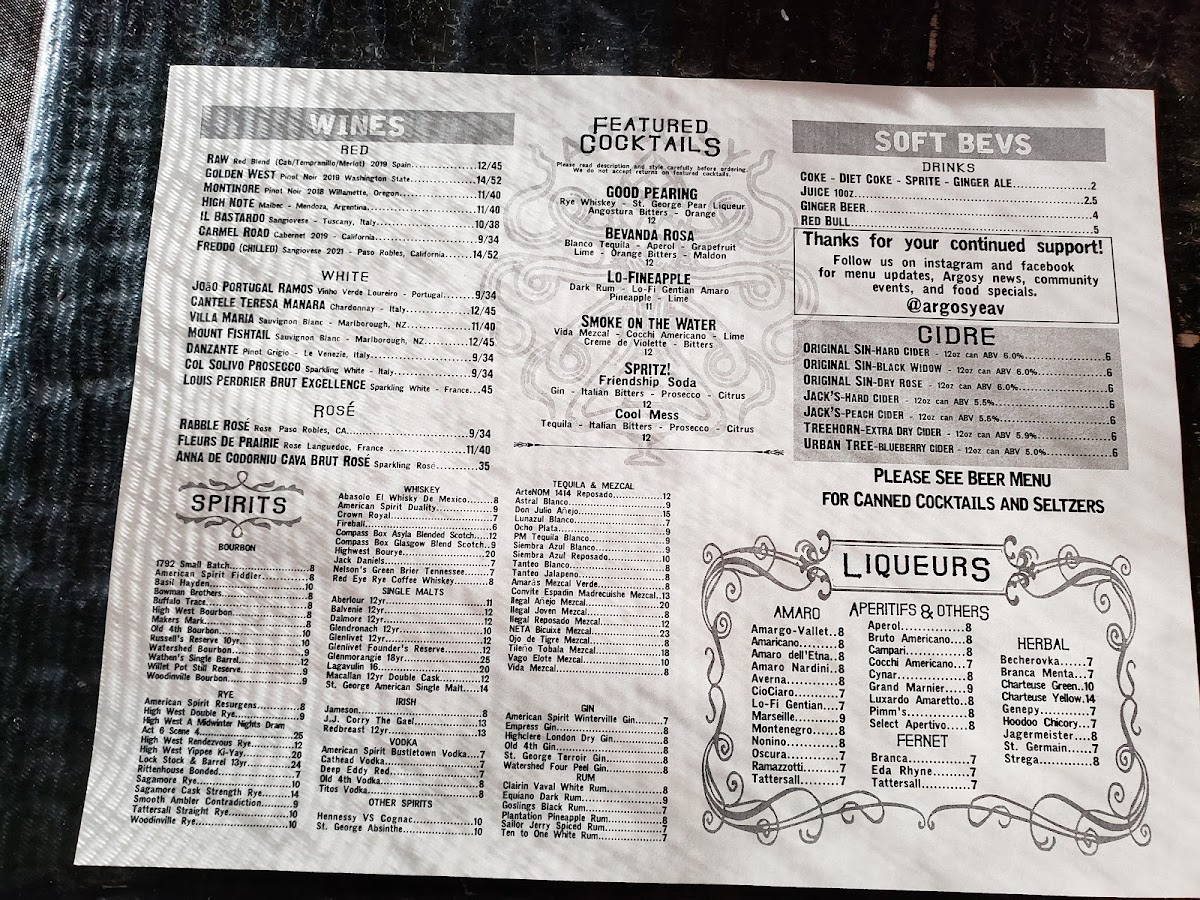 WINES
RED
RAW Red Blend (Cab/Tempranillo/Merlot) 2019 Spain...............12/45
GOLDEN WEST Pinot Noir 2019 Washington State...............14/52
MONTINORE Pinot Noir 2018 Willamette, Oregon...............11/40
HIGH NOTE Malbec - Mendoza, Argentina...............11/40
IL BASTARDO Sangiovese - Tuscany, Italy...............10/38
CARMEL ROAD Cabernet 2019 - California...............9/34
FREDDO (CHILLED) Sangiovese 2021 - Paso Robles, California.......14/52
WHITE
JOÃO PORTUGAL RAMOS Vinho Verde Loureiro - Portugal.......9/34
CANTELE TERESA MANARA Chardonnay - Italy...............12/45
VILLA MARIA Sauvignon Blanc - Marlborough, NZ...............11/40
MOUNT FISHTAIL Sauvignon Blanc - Marlborough, NZ...........12/45
DANZANTE Pinot Grigio - Le Venezie, Italy...............9/34
COL SOLIVO PROSECCO Sparkling White - Italy...............9/34
LOUIS PERDRIER BRUT EXCELLENCE Sparkling White - France...45
ROSÉ
RABBLE ROSÉ Rose Paso Robles, CA...............9/34
FLEURS DE PRAIRIE Rose Languedoc, France ...............11/40
ANNA DE CODORNIU CAVA BRUT ROSÉ Sparkling Rosé.........35
FEATURED
COCKTAILS
Please read description and style carefully before ordering.
We do not accept returns on featured cocktails.
GOOD PEARING
Rye Whiskey - St. George Pear Liqueur
Angostura Bitters - Orange
12
BEVANDA ROSA
Blanco Tequila - Aperol - Grapefruit
Lime - Orange Bitters - Maldon
12
LO-FINEAPPLE
Dark Rum - Lo-Fi Gentian Amaro
Pineapple - Lime
11
SMOKE ON THE WATER
Vida Mezcal - Cocchi Americano - Lime
Creme de Violette - Bitters
12
SPRITZ!
Friendship Soda
Gin - Italian Bitters - Prosecco - Citrus
12
Cool Mess
Tequila - Italian Bitters - Prosecco - Citrus
12
SOFT BEVS
DRINKS
COKE - DIET COKE - SPRITE - GINGER ALE...............2
JUICE 10OZ...............2.5
GINGER BEER...............4
RED BULL...............5
Thanks for your continued support!
Follow us on instagram and facebook
for menu updates, Argosy news, community
events, and food specials.
@argosyeav
CIDRE
ORIGINAL SIN-HARD CIDER - 12oz can ABV 6.0%...............6
ORIGINAL SIN-BLACK WIDOW - 12oz can ABV 6.0%...............6
ORIGINAL SIN-DRY ROSE - 12oz can ABV 6.0%...............6
JACK'S-HARD CIDER - 12oz can ABV 5.5%...............6
JACK'S-PEACH CIDER - 12oz can ABV 5.5%...............6
TREEHORN-EXTRA DRY CIDER - 12oz can ABV 5.9%...............6
URBAN TREE-BLUEBERRY CIDER - 12oz can ABV 5.0%...............6
PLEASE SEE BEER MENU
FOR CANNED COCKTAILS AND SELTZERS
SPIRITS
BOURBON
1792 Small Batch...............8
American Spirit Fiddler...............8
Basil Hayden...............10
Bowman Brothers...............8
Buffalo Trace...............8
High West Bourbon...............8
Makers Mark...............8
Old 4th Bourbon...............8
Russell's Reserve 10yr...............10
Watershed Bourbon...............9
Wathen's Single Barrel...............12
Willet Pot Still Reserve...............9
Woodinville Bourbon...............9
RYE
American Spirit Resurgens...............8
High West Double Rye...............9
High West A Midwinter Nights Dram
Act 6 Scene 4...............25
High West Rendezvous Rye...............12
High West Yippee Ki-Yay...............20
Lock Stock & Barrel 13yr...............24
Rittenhouse Bonded...............7
Sagamore Rye...............10
Sagamore Cask Strength Rye...............14
Smooth Ambler Contradiction...............9
Tattersall Straight Rye...............10
Woodinville Rye...............10
WHISKEY
Abasolo El Whisky De Mexico...............8
American Spirit Duality...............9
Crown Royal...............7
Fireball...............6
Compass Box Asyla Blended Scotch....12
Compass Box Glasgow Blend Scotch..9
Highwest Bourye...............20
Jack Daniels...............7
Nelson's Green Brier Tennessee.......7
Red Eye Rye Coffee Whiskey...............8
SINGLE MALTS
Aberlour 12yr...............11
Balvenie 12yr...............12
Dalmore 12yr...............12
Glendronach 12yr...............10
Glenlivet 12yr...............12
Glenlivet Founder's Reserve...............12
Glenmorangie 18yr...............25
Lagavulin 16...............20
Macallan 12yr Double Cask...............12
St. George American Single Malt.....14
IRISH
Jameson...............8
J.J. Corry The Gael...............13
Redbreast 12yr...............13
VODKA
American Spirit Bustletown Vodka....7
Cathead Vodka...............7
Deep Eddy Red...............7
Old 4th Vodka...............8
Titos Vodka...............8
OTHER SPIRITS
Hennessy VS Cognac...............10
St. George Absinthe...............10
TEQUILA & MEZCAL
ArteNOM 1414 Reposado...............12
Astral Blanco...............9
Don Julio Añejo...............15
Lunazul Blanco...............7
Ocho Plata...............9
PM Tequila Blanco...............9
Siembra Azul Blanco...............9
Siembra Azul Reposado...............10
Tanteo Blanco...............8
Tanteo Jalapeno...............8
Amarás Mezcal Verde...............8
Convite Espadin Madrecuishe Mezcal..13
Ilegal Añejo Mezcal...............20
Ilegal Joven Mezcal...............8
Ilegal Reposado Mezcal...............12
NETA Bicuixe Mezcal...............23
Ojo de Tigre Mezcal...............8
Tileño Tobala Mezcal...............20
Vago Elote Mezcal...............10
Vida Mezcal...............8
GIN
American Spirit Winterville Gin.......7
Empress Gin...............8
Highclere London Dry Gin...............8
Old 4th Gin...............8
St. George Terroir Gin...............8
Watershed Four Peel Gin...............8
RUM
Clairin Vaval White Rum...............8
Equiano Dark Rum...............9
Goslings Black Rum...............7
Plantation Pineapple Rum...............8
Sailor Jerry Spiced Rum...............7
Ten to One White Rum...............7
LIQUEURS
AMARO
Amargo-Vallet..8
Amaricano.......8
Amaro dell'Etna..8
Amaro Nardini..8
Averna.......8
CioCiaro.......7
Lo-Fi Gentian....7
Marseille.......9
Montenegro.......8
Nonino.......8
Oscura.......7
Ramazzotti.......7
Tattersall.......7
APERITIFS & OTHERS
Aperol...............8
Bruto Americano...8
Campari...............8
Cocchi Americano...7
Cynar...............8
Grand Marnier.....9
Luxardo Amaretto..8
Pimm's...............8
Select Apertivo...8
FERNET
Branca...............7
Eda Rhyne.......7
Tattersall.......7
HERBAL
Becherovka......7
Branca Menta....7
Charteuse Green..10
Charteuse Yellow.14
Genepy.......7
Hoodoo Chicory...7
Jagermeister....8
St. Germain.....7
Strega.......8